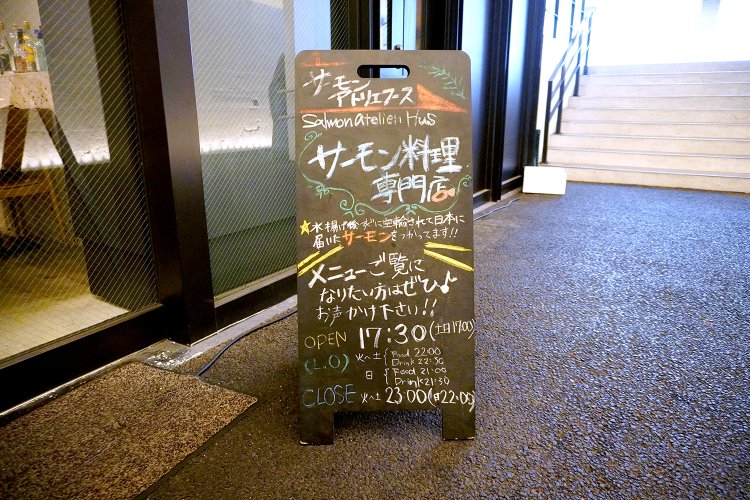 サーモン
アトリエフース
Salmon atelier Hus
サーモン料理
専門店
★水揚げ後すぐに空輸されて日本に
届いたサーモンをつかってます!!
メニューご覧に
なりたい方はぜひ♪
お声かけ下さい!!
OPEN 17:30(土日17:00)
(L.O) 火〜土 { Food 22:00
Drink 22:30
日 { Food 21:00
Drink 21:30
CLOSE 火〜土 23:00(日22:00)